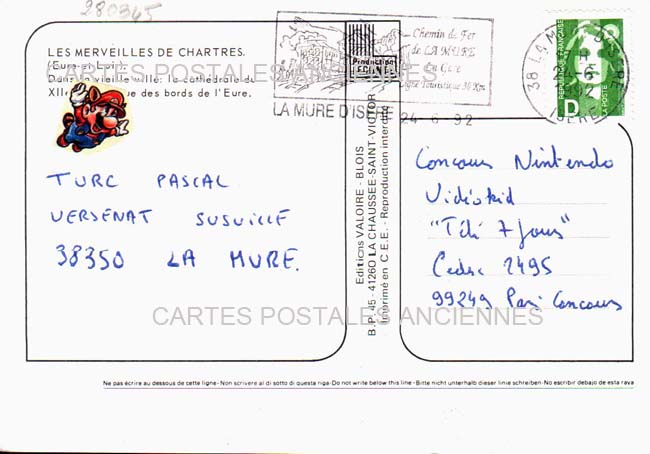 280345
LES MERVEILLES DE CHARTRES.
(Eure-et-Loir)
Dans la vieille ville: la cathédrale du
XIIe vue des bords de l'Eure.
CARTES POSTALES ANCIENNES
Chemin de Fer
de LA MURE
Gare
Touristique 30 Km
LA MURE D'ISERE
24-6-92
38 LA MURE D'ISERE
ISERE
1992
REPUBLIQUE FRANÇAISE
D
LA POSTE
TURC PASCAL
VERSENAT SUSVILLE
38350 LA MURE.
Editions VALOIRE - BLOIS
B.P. 45 - 41260 LA CHAUSSEE-SAINT-VICTOR
Imprimé en C.E.E. - Reproduction interdite
Concours Nintendo
Vidéokid
"Télé 7 Jours"
Cedex 2495
99249 Paris Concours
CARTES POSTALES ANCIENNES
Ne pas écrire au dessous de cette ligne-Non scrivere al di sotto di questa riga-Do not write below this line-Bitte nicht unterhalb dieser linie schreiben-No escribir debajo de esta raya